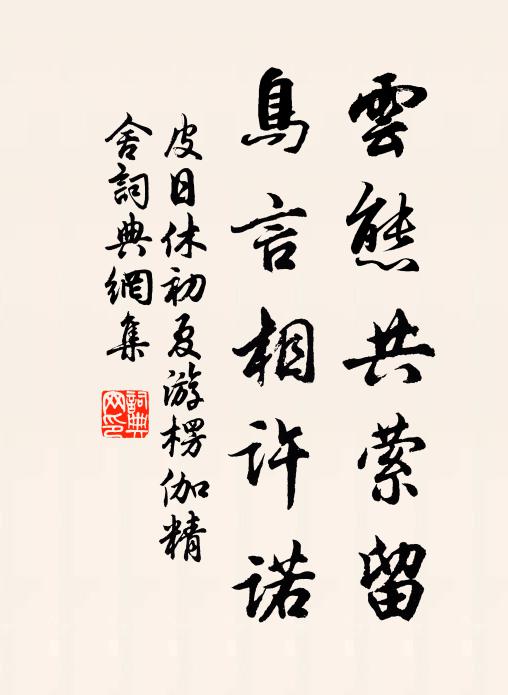 雲態共縈留
鳥言相許諾
皮日休初夏游楞伽精
舍詞典網集
詞典
网印